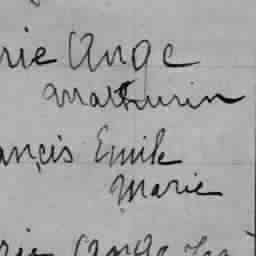 rie Ange
Mathurin
ancis Emile
Marie
rie Ange